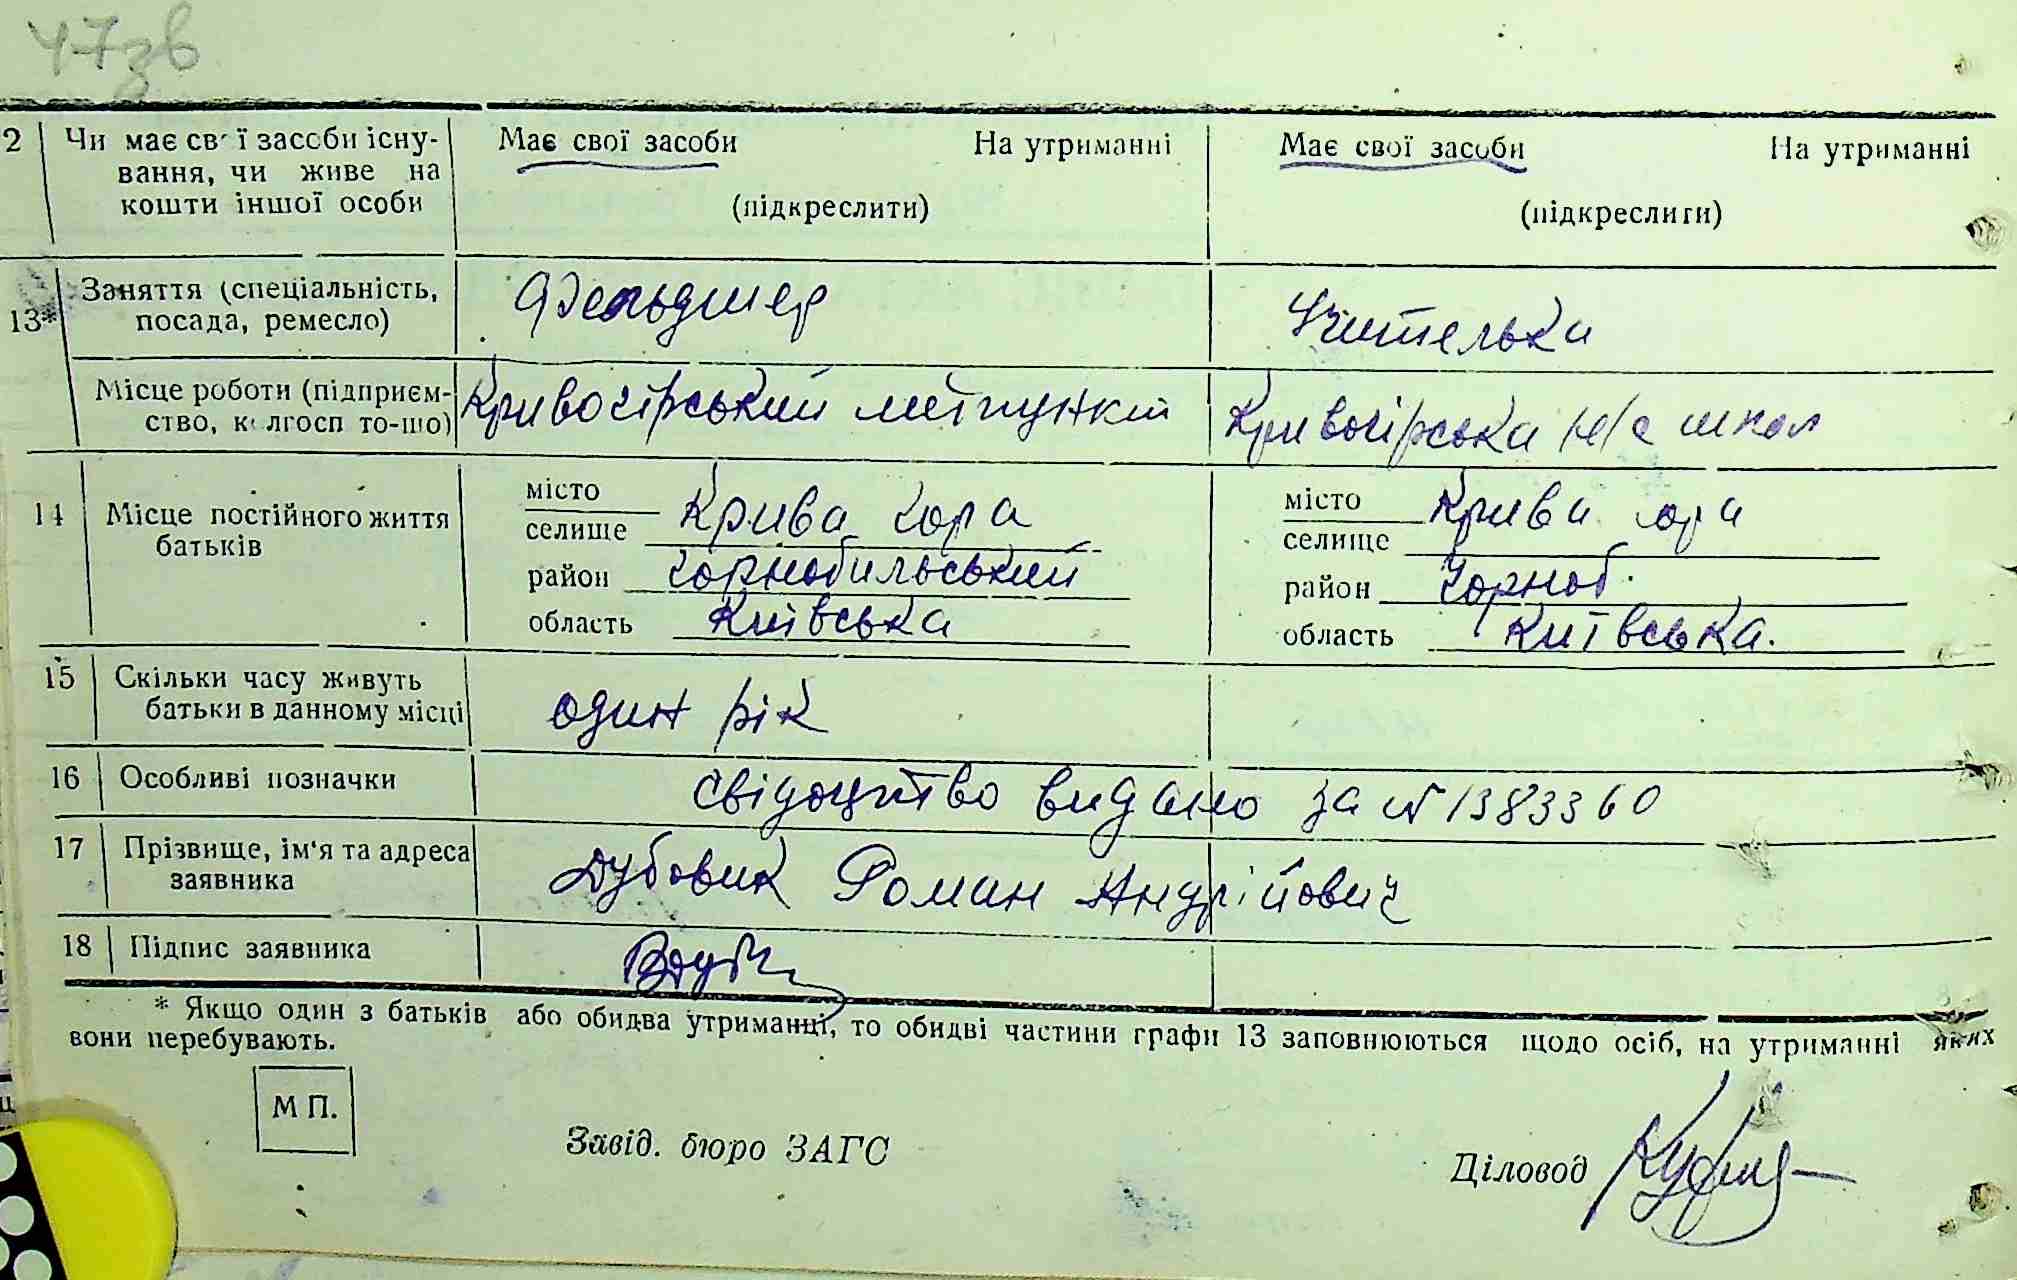 47зв
2 Чи має св ї засоби існу- Має свої засоби На утриманні Має свої засоби На утриманні
вання, чи живе на
кошти іншої особи (підкреслити) (підкреслити)
13* Заняття (спеціальність, Фельдшер Учителька
посада, ремесло)
Місце роботи (підприєм- Кривогірський медпункт Кривогірська н/с школ
ство, к лгосп то-що)
14 Місце постійного життя місто Крива гора місто Крива гора
батьків селище селище
район Чорнобильський район Чорноб.
область Київська область Київська.
15 Скільки часу живуть один рік
батьки в данному місці
16 Особливі позначки свідоцтво видано за № 1383360
17 Прізвище, ім'я та адреса Дубовик Роман Андрійович
заявника
18 Підпис заявника
* Якщо один з батьків або обидва утриманні, то обидві частини графи 13 заповнюються щодо осіб, на утриманні яких
вони перебувають.
М П.
Завід. бюро ЗАГС
Діловод